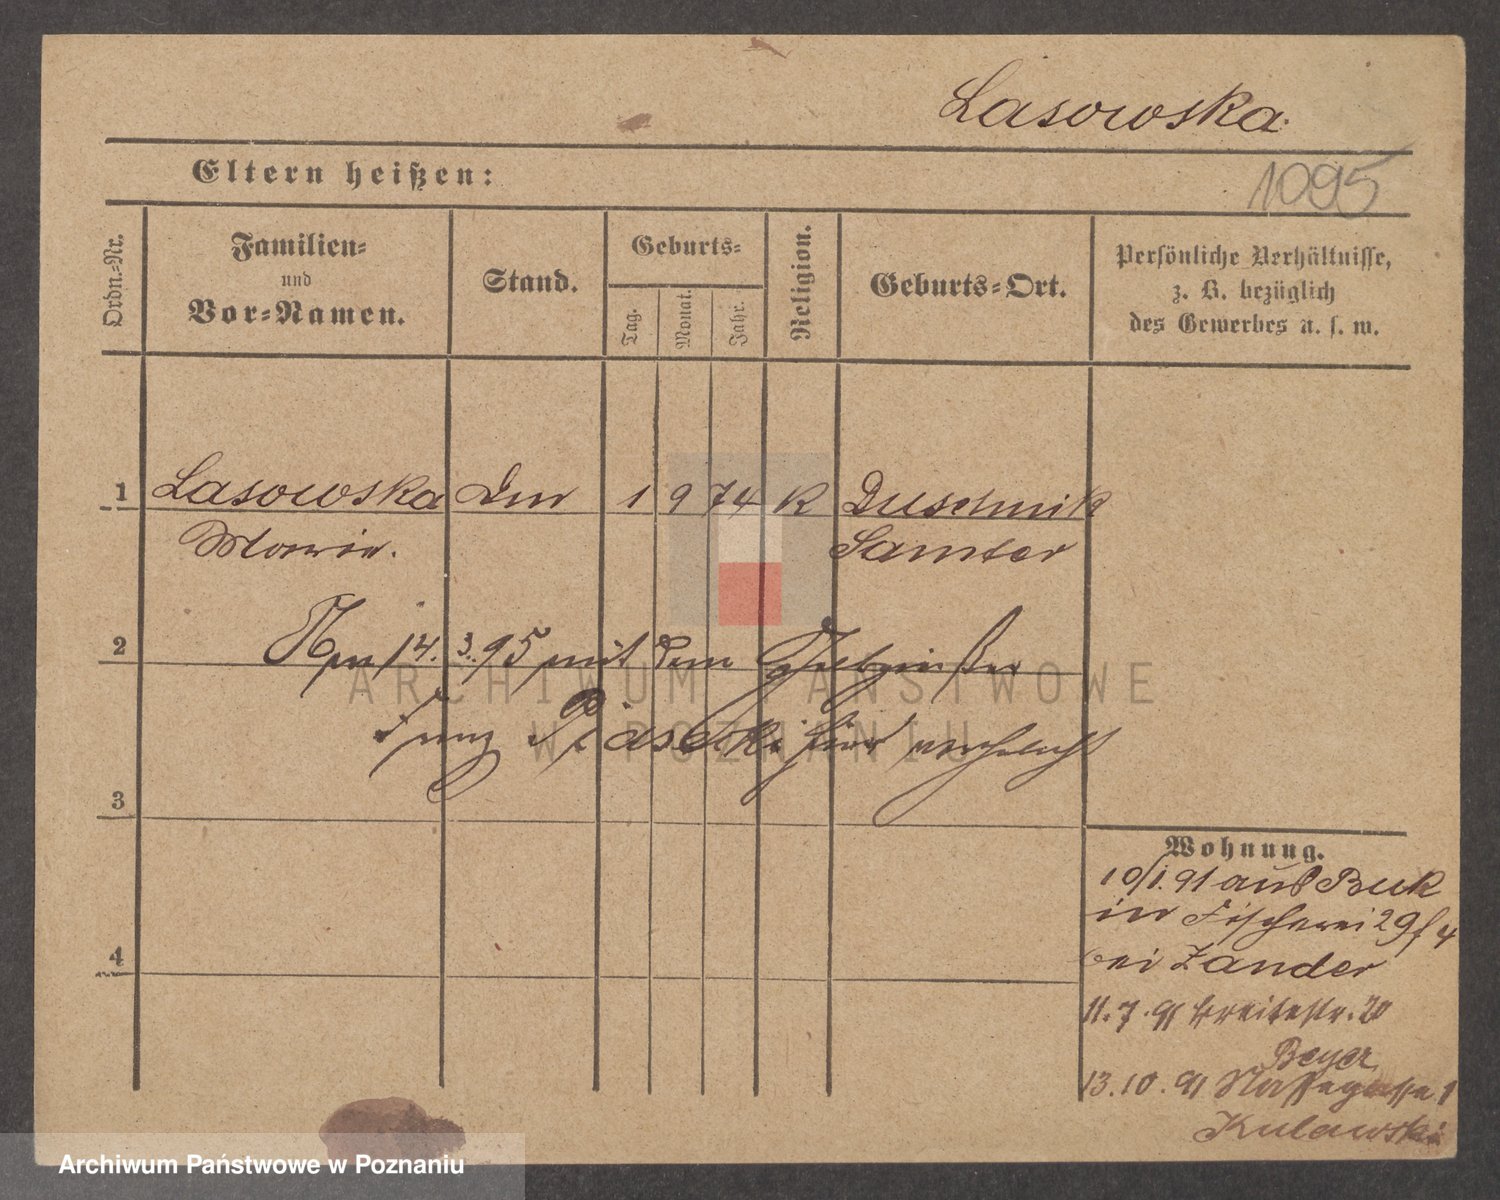 Lasowska
Eltern heißen:
1095
Ordn.-Nr.
Familien-
und
Vor-Namen.
Stand.
Geburts-
Tag.
Monat.
Jahr.
Religion.
Geburts-Ort.
Persönliche Verhältnisse,
z. B. bezüglich
des Gewerbes u. s. w.
1 Lasowska 1 9 74 K Duschnik
Marie. Samter
2 14. 3. 95 mit dem
Piasecki verehelicht
3
4
Wohnung.
10/1. 91 aus Buk
in Fischerei 29 f 4
bei Zander
11. 7. 91 Breitestr. 20
Beyer
13. 10. 91 Nassegasse 1
Kulawski
ARCHIWUM PAŃSTWOWE
W POZNANIU
Archiwum Państwowe w Poznaniu